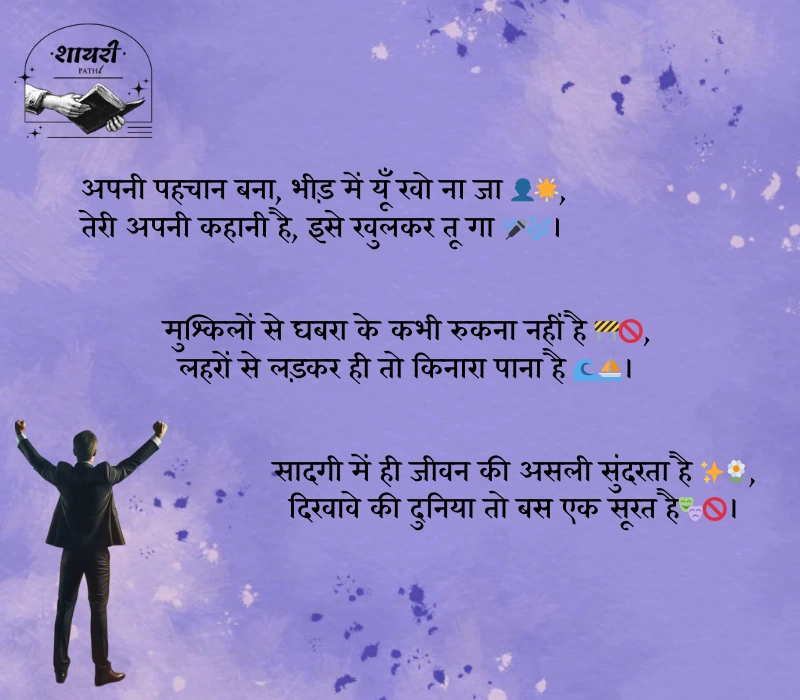 शायरी
PATH
अपनी पहचान बना, भीड़ में यूँ खो ना जा 👤🌟,
तेरी अपनी कहानी है, इसे खुलकर तू गा 🎤🎶।
मुश्किलों से घबरा के कभी रुकना नहीं है 🚧🚫,
लहरों से लड़कर ही तो किनारा पाना है 🌊⛵।
सादगी में ही जीवन की असली सुंदरता है ✨🌼,
दिखावे की दुनिया तो बस एक सूरत है🎭🚫।